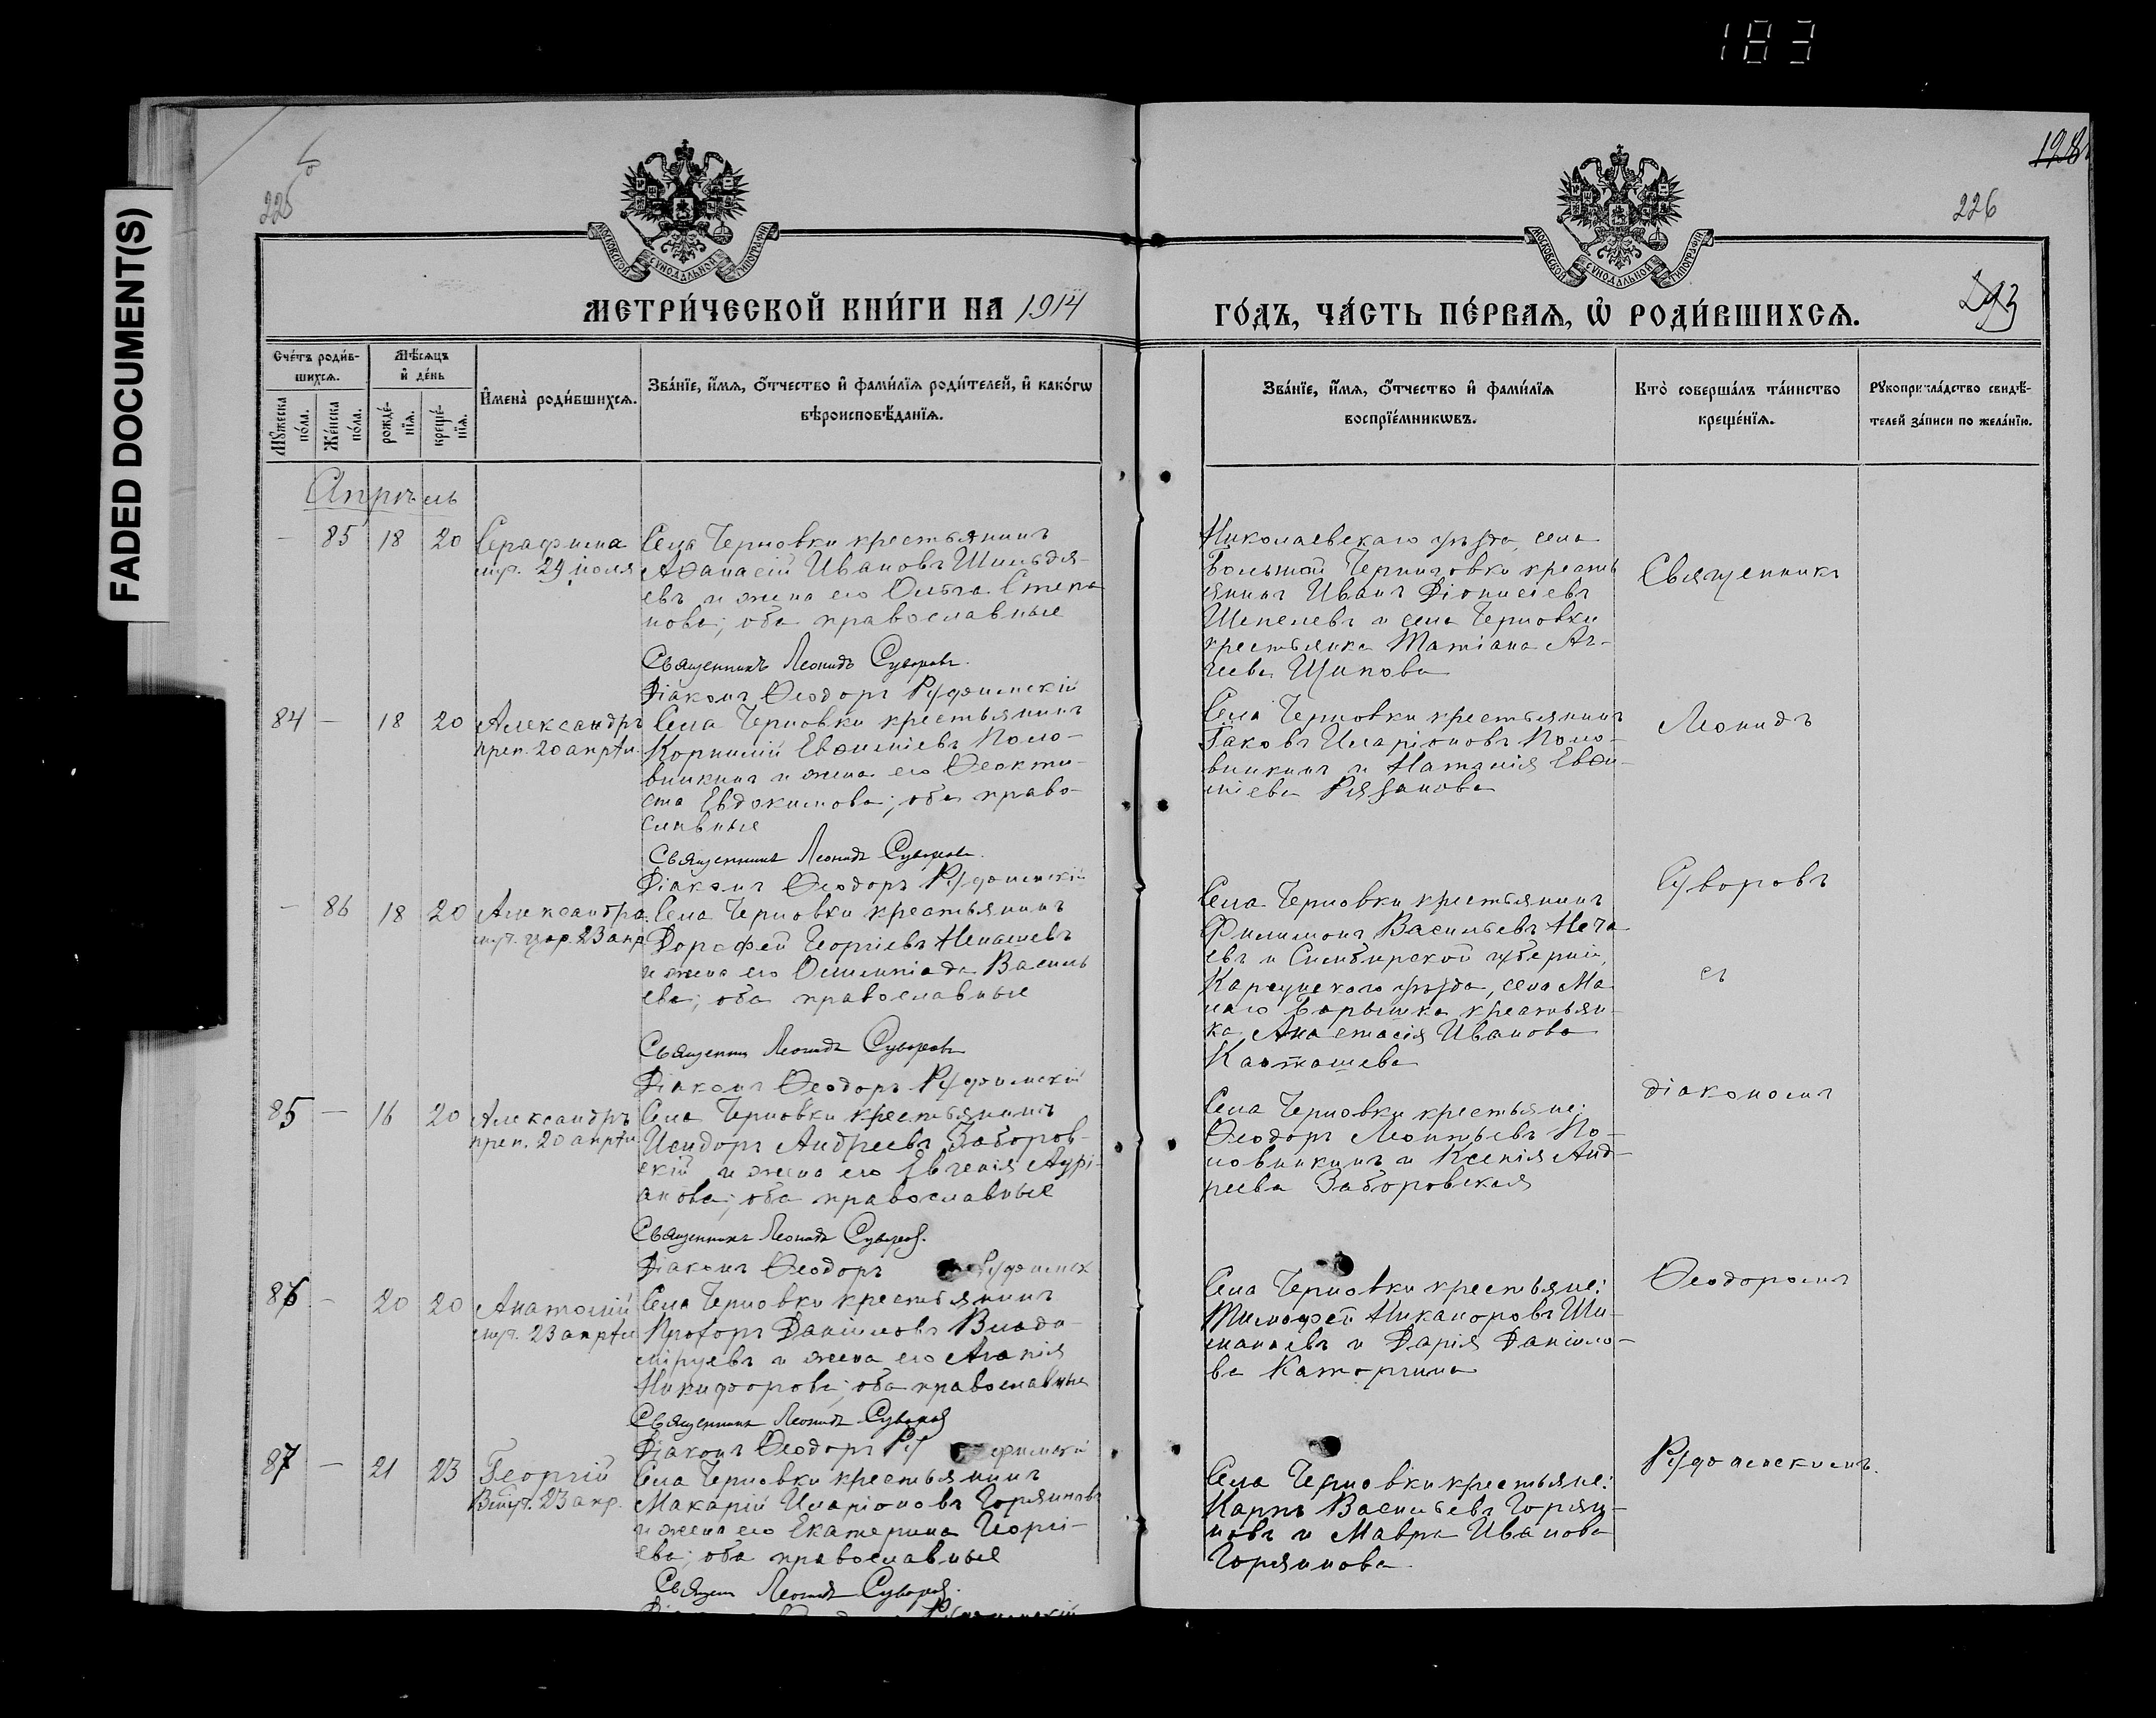 183
FADED DOCUMENT(S)
225
226
МОСКОВСКОЙ СѴНОДАЛЬНОЙ ТИПОГРАФІИ
МОСКОВСКОЙ СѴНОДАЛЬНОЙ ТИПОГРАФІИ
МЕТРИ́ЧЕСКОЙ КНИ́ГИ НА 1914
ГО́ДЪ, ЧА́СТЬ ПЕ́РВАѦ, Ѡ РОДИ́ВШИХСѦ.
Сче́тъ роди́в-
шихсѧ.
Мꙋжеска по́ла.
Же́нска по́ла.
Мѣ́сѧцъ
и҆ де́нь
рожде́-
нїѧ.
креще́-
нїѧ.
И҆мена̀ роди́вшихсѧ.
Зва́нїе, и҆́мѧ, ѻ҆́тчество и҆ фами́лїѧ роди́телей, и҆ како́гѡ
вѣроисповѣ́данїѧ.
Зва́нїе, и҆́мѧ, ѻ҆́тчество и҆ фами́лїѧ
воспрїе́мникѡвъ.
Кто̀ соверша́лъ та́инство
креще́нїѧ.
Рꙋкоприкла́дство свидѣ́-
телей за́писи по жела́нїю.
Апрѣль
— 85 18 20 Серафима
муч. 29 іюля
Села Черновки крестьянинъ
Аѳанасій Ивановъ Шильдя-
евъ и жена его Ольга Степа
нова; оба православные
Священникъ Леонидъ Суворовъ.
Діаконъ Ѳеодоръ Руфимскій
Николаевскаго уѣзда, села
Большой Черниговки кресть
янинъ Иванъ Діонисіевъ
Шепелевъ и села Черновки
крестьянка Татіана Аг-
геева Щипова
84 — 18 20 Александръ
преп. 20 апрѣл.
Села Черновки крестьянинъ
Корнилій Евѳиміевъ Поло-
винкинъ и жена его Ѳеокти-
ста Евдокимова; оба право-
славные
Священникъ Леонидъ Суворовъ.
Діаконъ Ѳеодоръ Руфимскій
Села Черновки крестьянинъ
Іаковъ Иларіоновъ Поло-
винкинъ и Наталія Евѳи-
міева Рязанова
— 86 18 20 Александра
муч. цар. 23 апр
Села Черновки крестьянинъ
Дорофей Георгіевъ Ненашевъ
и жена его Олимпіада Василь
ева; оба православные
Священник Леонидъ Суворовъ
Діаконъ Ѳеодоръ Руфимскій
Села Черновки крестьянинъ
Филимонъ Васильевъ Неча
евъ и Симбирской губерніи,
Карсунскаго уѣзда, села Ма
лаго Барышка крестьян-
ка Анастасія Иванова
Карташева
85 — 16 20 Александръ
преп. 20 апрѣл
Села Черновки крестьянинъ
Исидоръ Андреевъ Заборов-
скій и жена его Евгенія Адрі-
анова; оба православные
Священникъ Леонидъ Суворовъ.
Діаконъ Ѳеодоръ Руфимск
Села Черновки крестьяне:
Ѳеодоръ Леонтьевъ По-
ловинкинъ и Ксенія Анд-
реева Заборовская
86 — 20 20 Анатолій
муч. 23 апрѣл
Села Черновки крестьянинъ
Прохоръ Даніиловъ Влади-
міруевъ и жена его Агапія
Никифорова; оба православные
Священникъ Леонидъ Суворовъ
Діаконъ Ѳеодоръ Ру фимскій
Села Черновки крестьяне:
Тимофей Никаноровъ Ши-
манаевъ и Дарія Даніило-
ва Каторгина
87 — 21 23 Георгій
Вмуч. 23 апр.
Села Черновки крестьянинъ
Макарій Иларіоновъ Горяиновъ
и жена его Екатерина Георгі-
ева; оба православные
Священ Леонидъ Суворовъ.
Села Черновки крестьяне:
Карпъ Васильевъ Горяи-
новъ и Мавра Иванова
Горяинова.
Священникъ
Леонидъ
Суворовъ
съ
діакономъ
Ѳеодоромъ
Руфимскимъ.